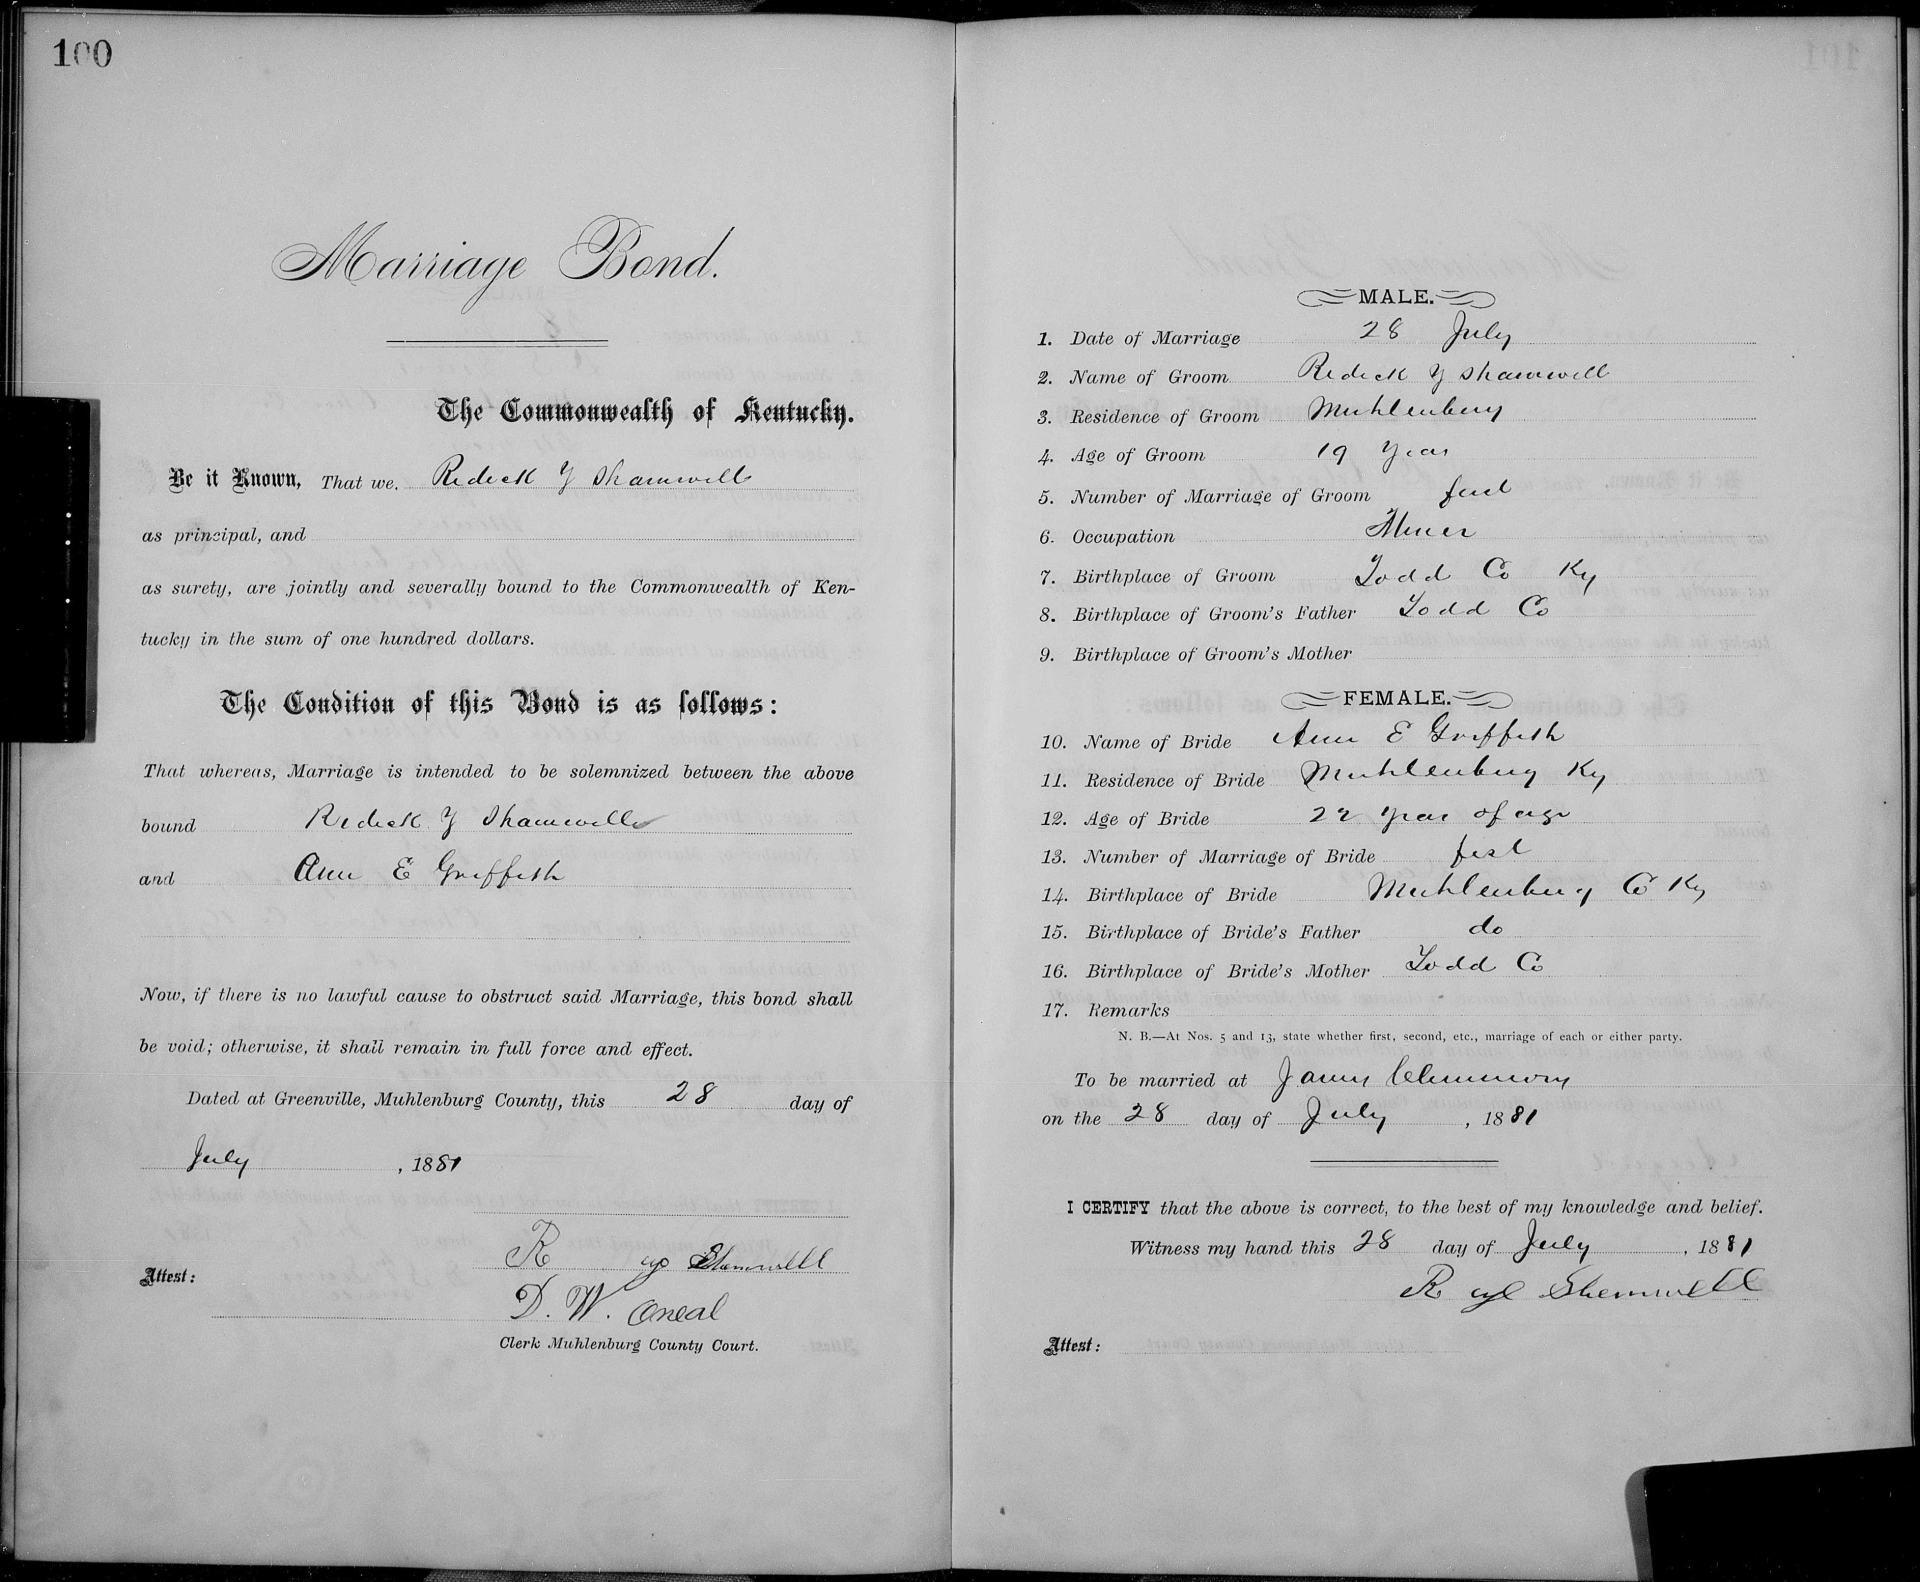 100
Marriage Bond.
The Commonwealth of Kentucky.
Be it Known, That we, Redick Y Shamwell
as principal, and
as surety, are jointly and severally bound to the Commonwealth of Ken-
tucky in the sum of one hundred dollars.
The Condition of this Bond is as follows:
That whereas, Marriage is intended to be solemnized between the above
bound Redick Y Shamwell
and Ann E Griffith
Now, if there is no lawful cause to obstruct said Marriage, this bond shall
be void; otherwise, it shall remain in full force and effect.
Dated at Greenville, Muhlenburg County, this 28 day of
July, 1881
R Shemwell
Attest:
D. W. Oneal
Clerk Muhlenburg County Court.
MALE.
1. Date of Marriage 28 July
2. Name of Groom Redick Y Shamwell
3. Residence of Groom Muhlenburg
4. Age of Groom 19 Year
5. Number of Marriage of Groom first
6. Occupation
7. Birthplace of Groom Todd Co Ky
8. Birthplace of Groom's Father Todd Co
9. Birthplace of Groom's Mother
FEMALE.
10. Name of Bride Ann E Griffith
11. Residence of Bride Muhlenburg Ky
12. Age of Bride 22 year of age
13. Number of Marriage of Bride first
14. Birthplace of Bride Muhlenburg Co Ky
15. Birthplace of Bride's Father do
16. Birthplace of Bride's Mother Todd Co
17. Remarks
N. B.—At Nos. 5 and 13, state whether first, second, etc., marriage of each or either party.
To be married at
on the 28 day of July, 1881
I CERTIFY that the above is correct, to the best of my knowledge and belief.
Witness my hand this 28 day of July, 1881
R Shemwell
Attest: